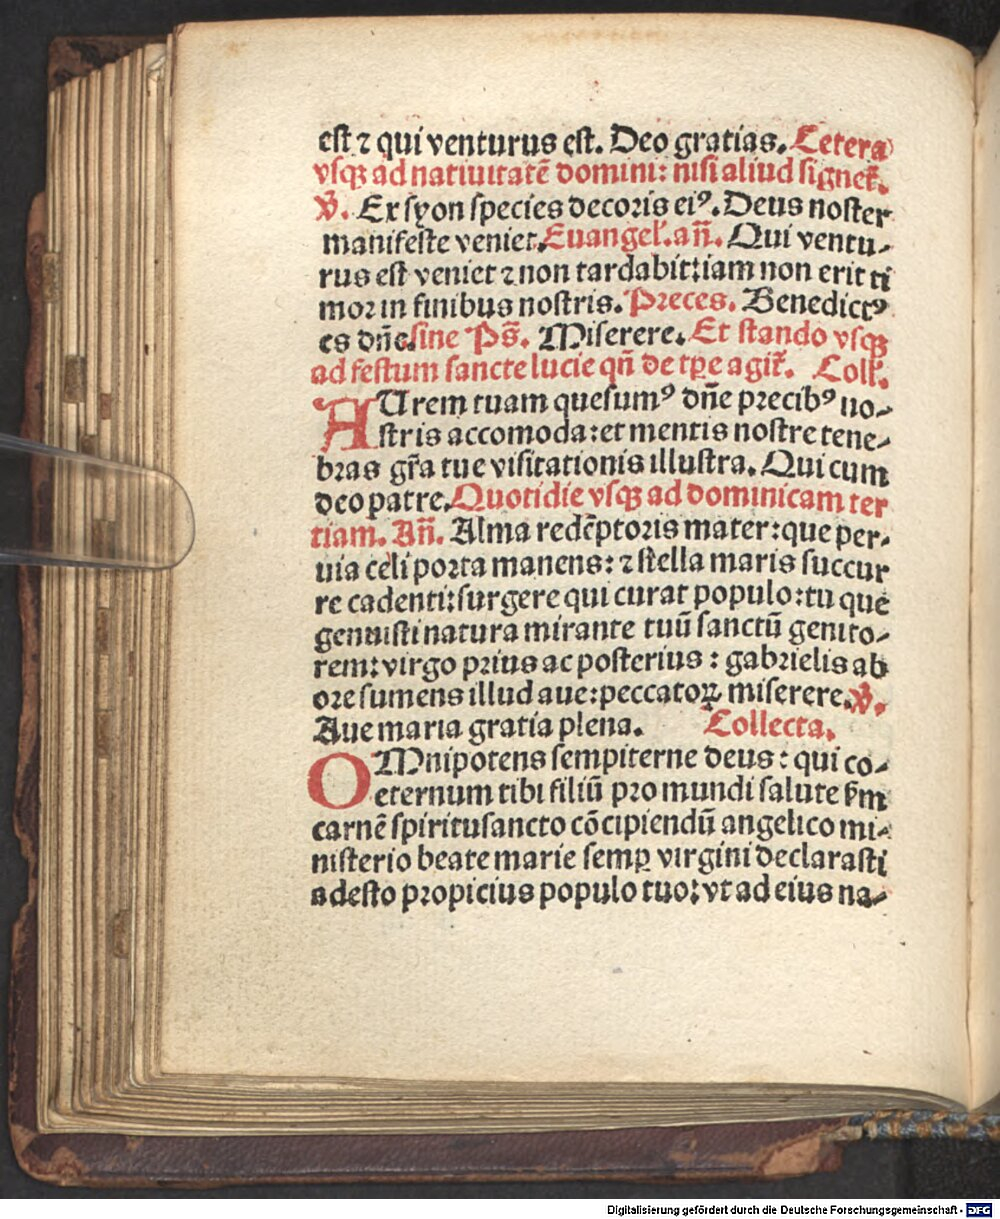 est ⁊ qui venturus est. Deo gratias. Cetera
vsqꝫ ad natiuitatē domini: nisi aliud signet̄.
℣. Ex syon species decoris eiꝰ. Deus noster
manifeste veniet. Euangel̄. an̄. Qui ventu⸗
rus est veniet ⁊ non tardabit: iam non erit ti
mor in finibus nostris. Preces. Benedictꝰ
es dn̄e sine Ps̄. Miserere. Et stando vsqꝫ
ad festum sancte lucie qn̄ de tp̄e agit̄. Coll̄.
AUrem tuam quesumꝰ dn̄e precibꝰ no⸗
stris accomoda: et mentis nostre tene⸗
bras gr̄a tue visitationis illustra. Qui cum
deo patre. Quotidie vsqꝫ ad dominicam ter
tiam. An̄. Alma redēptoris mater: que per⸗
uia celi porta manens: ⁊ stella maris succur
re cadenti: surgere qui curat populo: tu que
genuisti natura mirante tuū sanctū genito⸗
rem: virgo prius ac posterius: gabrielis ab
ore sumens illud aue: peccatoꝝ miserere. ℣.
Aue maria gratia plena. Collecta.
OMnipotens sempiterne deus: qui co⸗
eternum tibi filiū pro mundi salute ẜm
carnē spiritusancto cōcipiendū angelico mi⸗
nisterio beate marie semꝑ virgini declarasti
adesto propicius populo tuo: vt ad eius na⸗
Digitalisierung gefördert durch die Deutsche Forschungsgemeinschaft - DFG